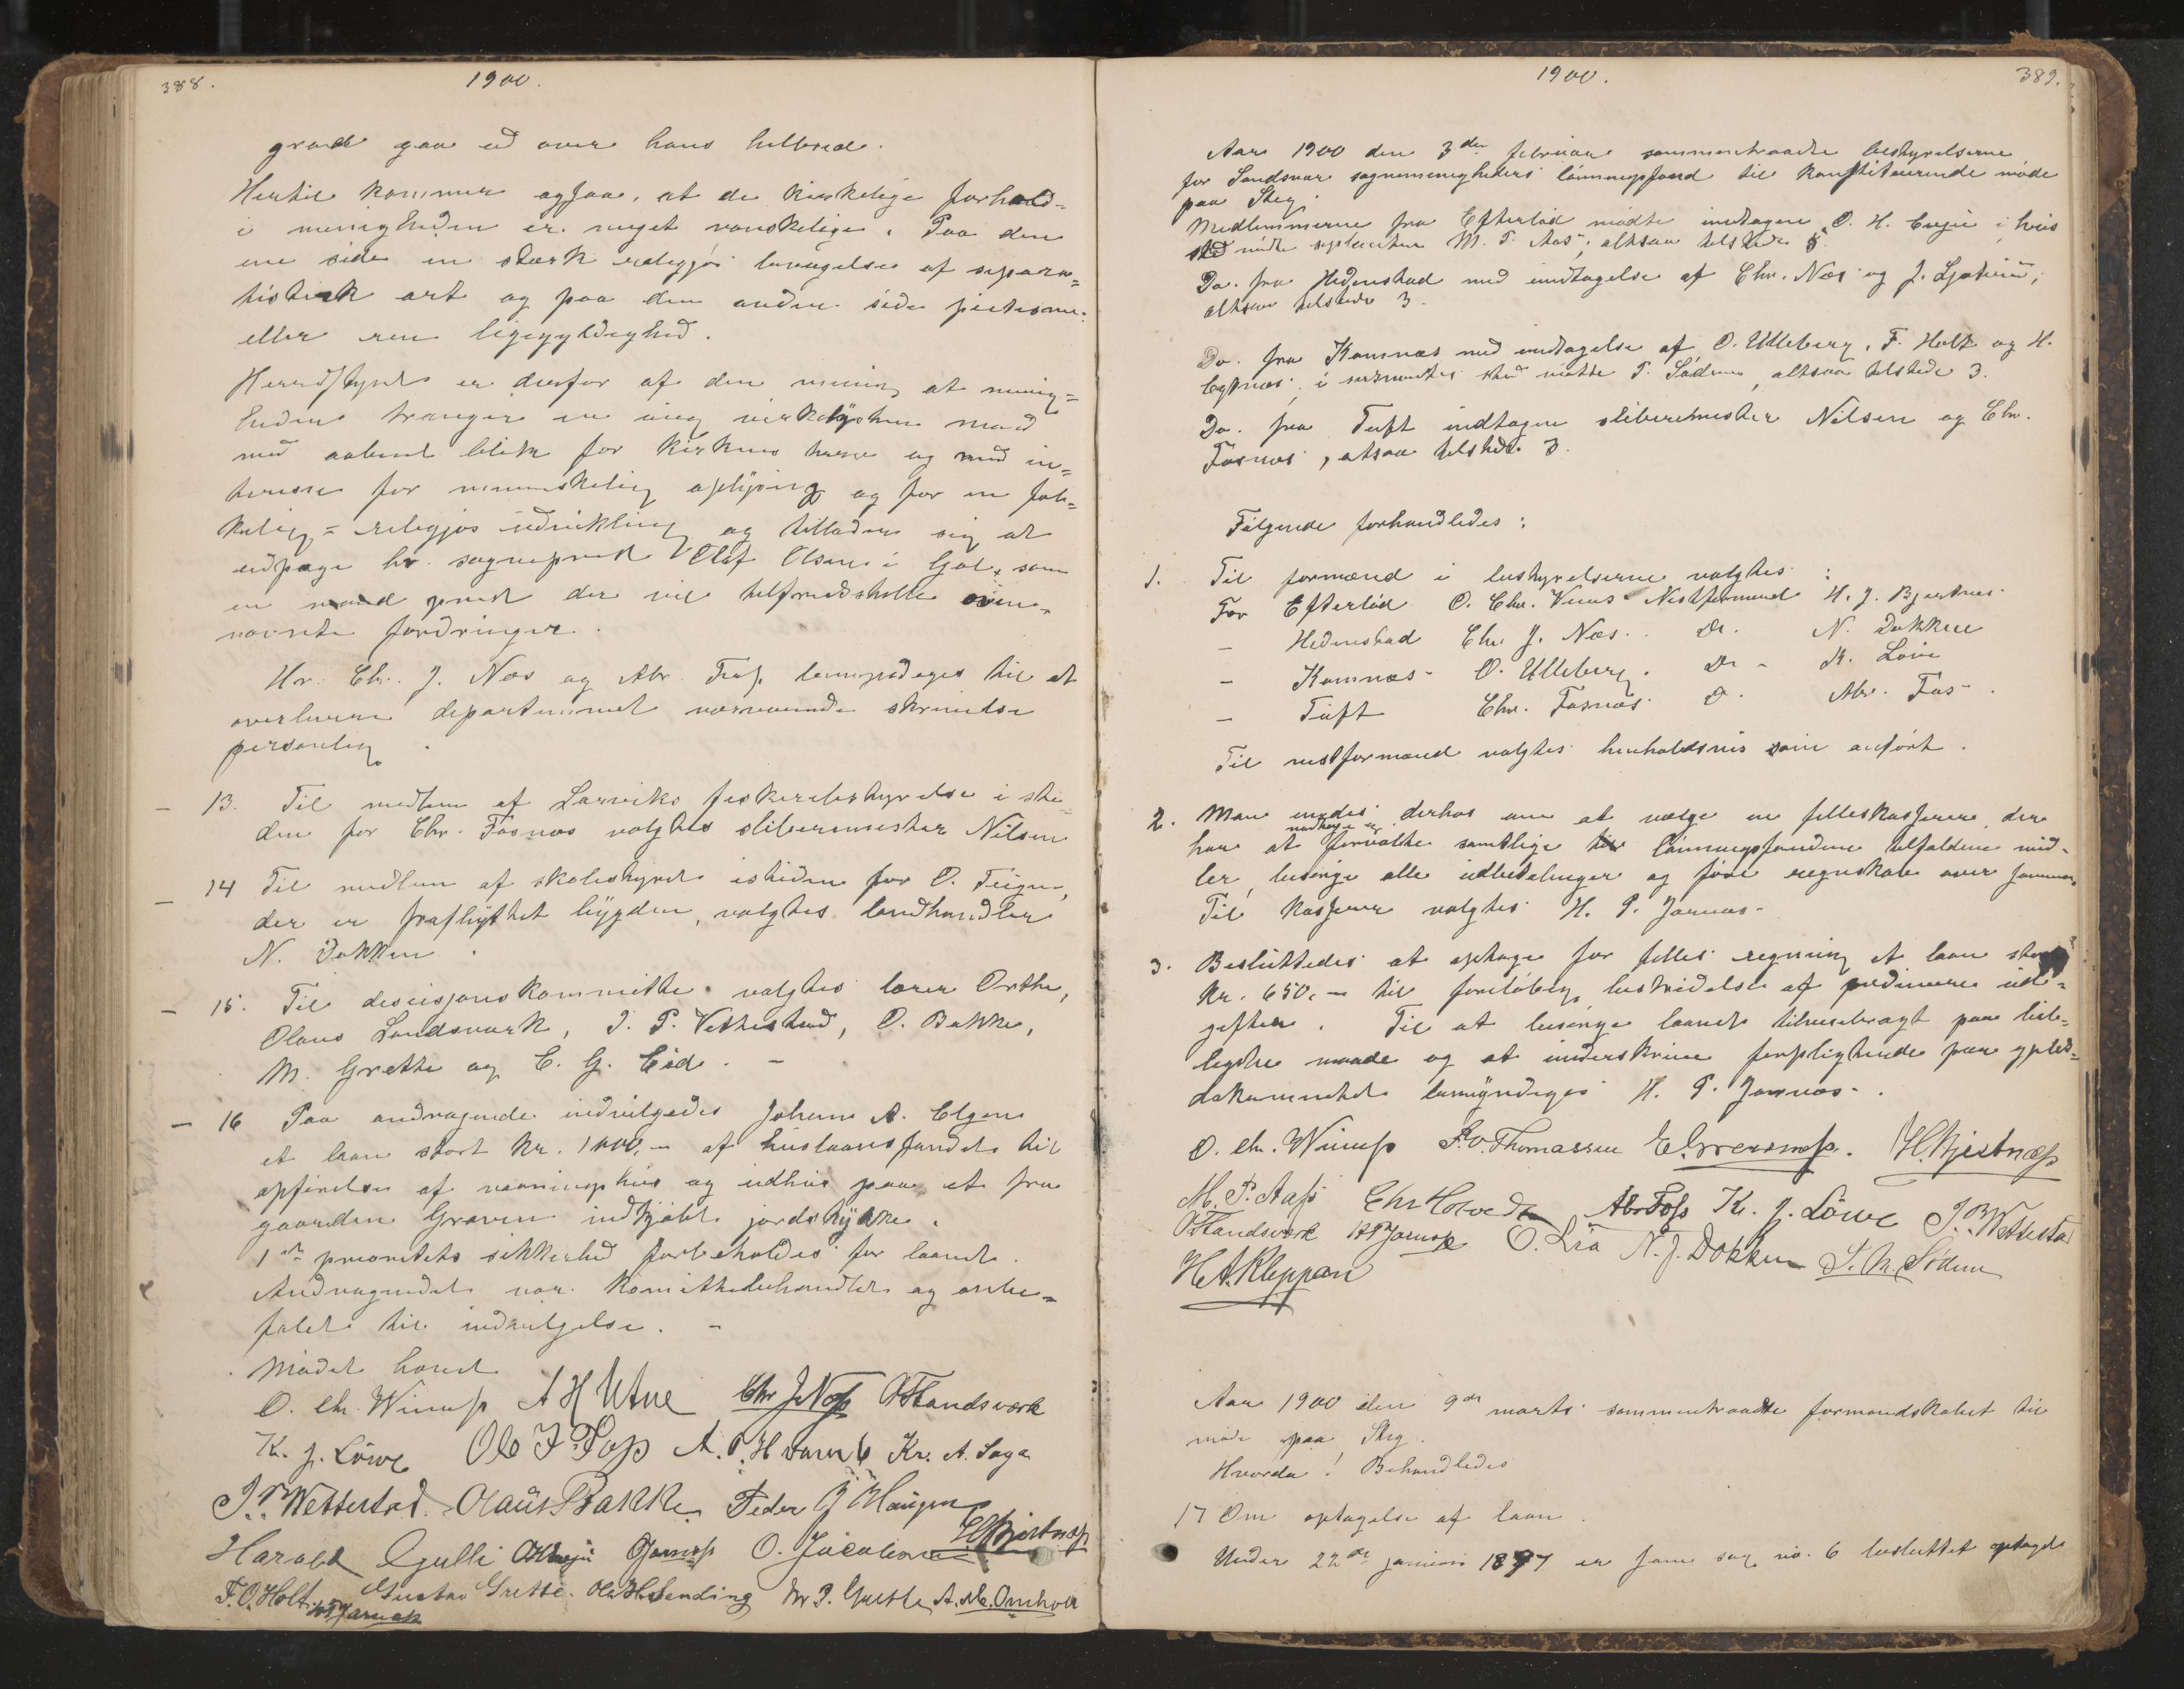 388.
1900.
grad gaa ud over hans helbred.
Hertil kommer ogsaa, at de kirkelige forhold=
i menigheden er meget vanskelige. Paa den
ene side en stærk religjøs bevægelse af separa=
tistisk art og paa den anden side pietisme
eller ren ligegyldighed.
Herredsstyret er derfor af den mening at menig=
heden trænger en ung virkelysten mand
med aabent blik for kirkens tarv og med in=
teresse for menneskelig oplysning og for en fol=
kelig= religjøs udvikling og tillader sig at
udpege hr. sogneprest Olaf Olsen i Gol, som
en mand prest der vil tilfredsstille oven=
nævnte fordringer.
Hr. Chr. J. Næs og Abr. Fos bemyndiges til at
overlevere departementet nærværende skrivelse
personlig.
– 13. Til medlem af Larviks fiskeribestyrelse i ste=
den for Chr. Fosnæs valgtes slibermester Nilsen
– 14 Til medlem af skolestyret isteden for O. Teigen,
der er fraflyttet bygden, valgtes landhandler
N. Dokken.
– 15. Til decisjonskommitte valgtes lærer Orthe,
Olaus Landsverk, J. P. Vettestad, O. Bakke,
M. Grette og C. G. Eid. –
– 16 Paa andragende indvilgedes Johan A. Elgen
et laan stort kr. 1000,– af huslaansfondet til
opførelse af vaaningshus og udhus paa et fra
gaarden Graven indkjøbt jordstykke.
1ste prioritets sikkerhed forbeholdes for laanet.
Andragendet var komittebehandlet og anbe=
falet til indvilgelse. –
Mødet hævet
O. Chr. Winnæss A H Utne Chr J Næss O Landsverk
K. J. Löwe Ole J Foss A. P. Hvamb Kr. A. Saga
J. P. Wettestad. Olaus Bakke Peder G Haugen
Harald Gulli O Jarnæss O. Jacobsen H Bjertnæss
F. O. Holt Gustav Grette. Ole H. Sending M P. Grette A. M. Omholt
H P Jarnæss
1900.
389.
Aar 1900 den 3die februar sammentraadte bestyrelserne
for Sandsvær sognemenigheders lønningsfond til konstituerende møde
paa Steg.
Medlemmerne fra Eftelød mødte undtagen O. H. Enger i hvis
sted mødte suppleanten M. P. Aas, altsaa tilstede 5.
Do. fra Hedenstad med undtagelse af Chr. Næs og J.
altsaa tilstede 3.
Do. fra Komnæs med undtagelse af O. Ulleberg, F. Holt og H.
i sidstnævntes sted mødte P. Södem, altsaa tilstede 3.
Do. fra Tuft undtagen slibermester Nilsen og Chr.
Fosnæs, altsaa tilstede 3.
Følgende forhandledes:
1. Til formænd i bestyrelserne valgtes:
For Eftelød O. Chr. Vinæs Nestformand H. J. Bjertnes.
– Hedenstad Chr J. Næs. Do. N. Dokken
– Komnæs O. Ulleberg. Do – K. Löve
– Tuft Chr. Fosnæs D. Abr. Fos.
Til nestformænd valgtes henholdsvis som anført.
2. Man enedes derhos om at vælge en felleskasserer, der
modtage og
har at forvalte samtlige til lønningsfondene tilfaldene mid=
ler, besørge alle udbetalinger og føre regnskab over samme.
Til kasserer valgtes H. P. Jarnæs.
3. Besluttedes at optage for felles regning et laan stort
kr. 650,– til foreløbig bestridelse af prestenes ud=
gifter. Til at besørge laanet tilveiebragt paa bil=
ligste maade og at underskrive forpligtende paa gjelds=
dokumentet bemyndiges H. P. Jarnæs.
O. Chr. Winnæss P. O. Thomassen H. Bjertnæss
M. P. Aass Chr Hovedn Abr Foss K. J. Löwe J. P. Wettestad
O Landsverk H P Jarnæss O. Lia N. J. Dokken S. M. Södem
H A. Kleppan
Aar 1900 den 9de marts sammentraadte formandskabet til
møde paa Steg.
Hvorda! Behandledes
17 Om optagelse af laan.
Under 22de januar 1897 er sam sag no. 6 besluttet optaget